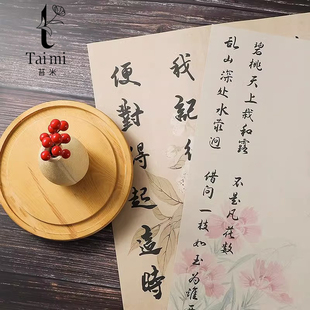 Taimi
苔米
碧桃天上栽和露
不是凡花数
乱山深处水萦迴
借问一枝如玉为谁
我記
便對得起這時